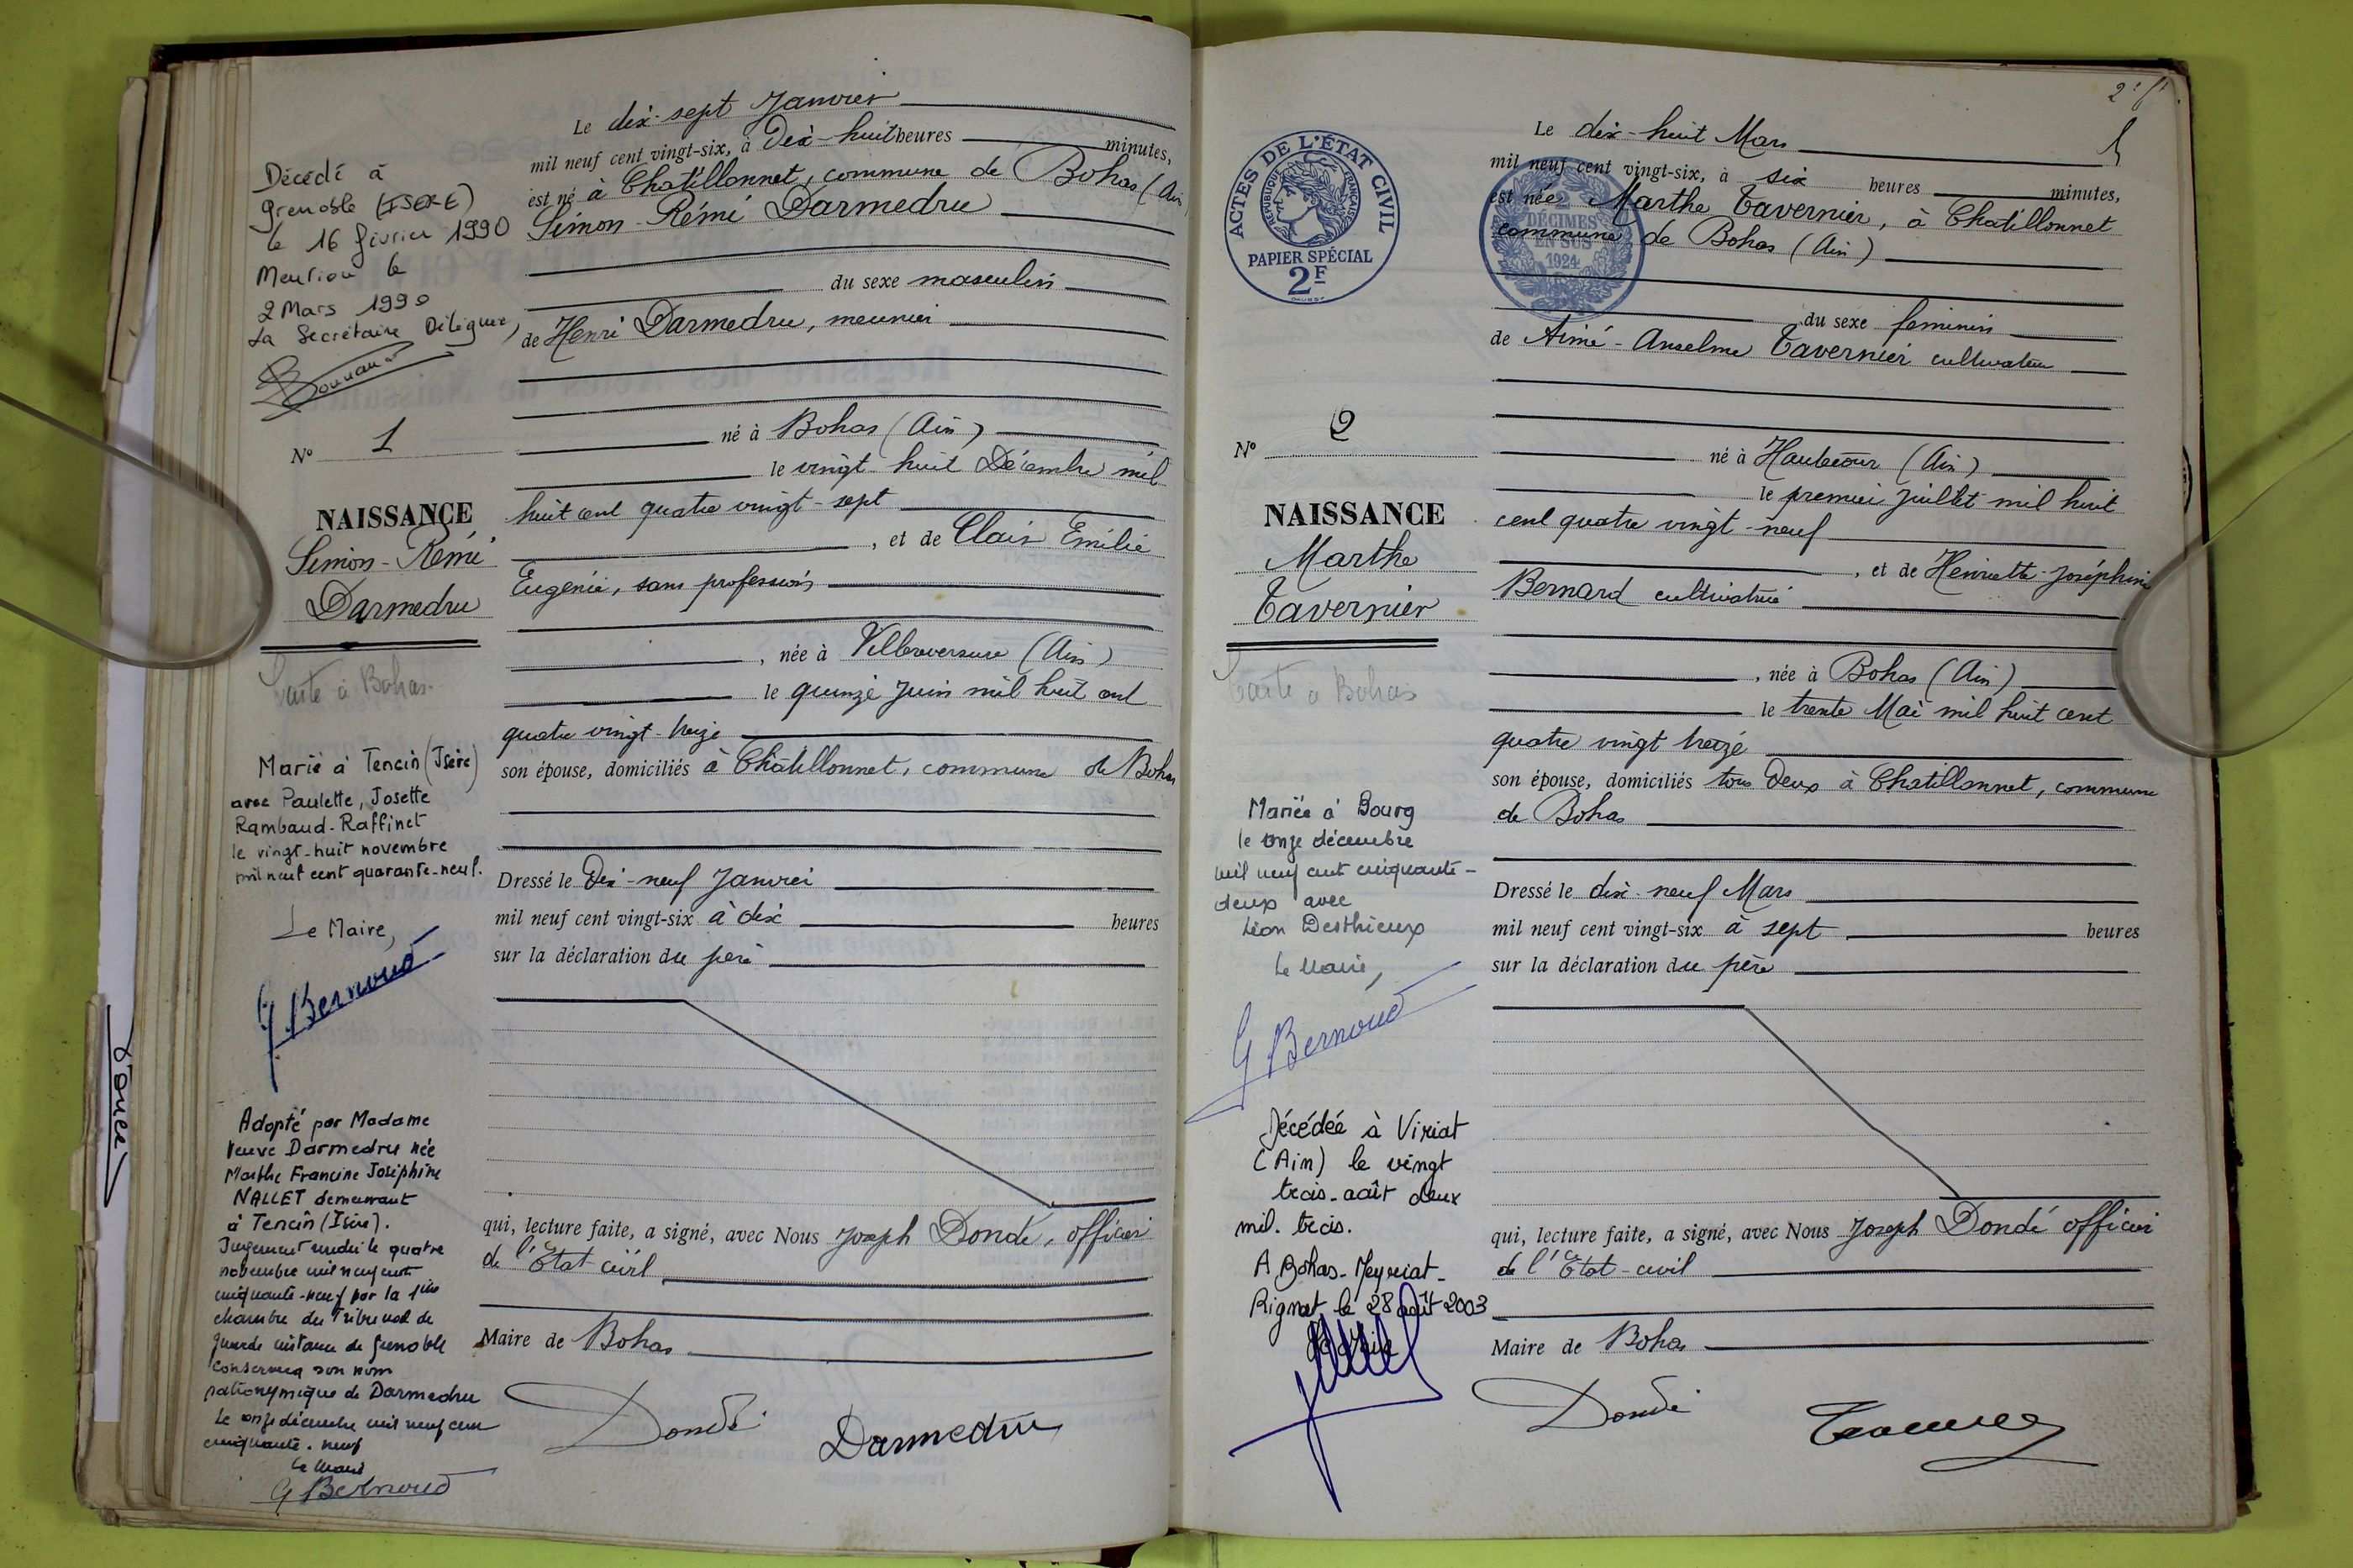 Le dix-sept Janvier
mil neuf cent vingt-six, à Dix-huit heures minutes,
est né à Chatillonnet, commune de Bohas (Ain)
Simon-Rémi Darmedru
du sexe masculin
de Henri Darmedru, meunier
né à Bohas (Ain)
le vingt-huit Décembre mil
huit cent quatre vingt-sept
, et de Clair Emilie
Eugénie, sans profession
, née à Villereversure (Ain)
le quinze Juin mil huit cent
quatre vingt-treize
son épouse, domiciliés à Chatillonnet, commune de Bohas
Dressé le Dix-neuf Janvier
mil neuf cent vingt-six à dix heures
sur la déclaration du père
qui, lecture faite, a signé, avec Nous Joseph Dondé, officier
de l'Etat-civil
Maire de Bohas
Dondé
Darmedru
Décédé à
Grenoble (ISERE)
le 16 février 1990
Mention le
2 Mars 1990
La Secrétaire Déléguée,
N° 1
NAISSANCE
Simon-Rémi
Darmedru
Carte à Bohas
Marié à Tencin (Isère)
avec Paulette, Josette
Rambaud-Raffinet
le vingt-huit novembre
mil neuf cent quarante-neuf.
Le Maire,
G Bernoud
Adopté par Madame
Veuve Darmedru née
Marthe Francine Joséphine
NALLET demeurant
à Tencin (Isère).
Jugement rendu le quatre
novembre mil neuf cent
cinquante-neuf par la 1ère
chambre du Tribunal de
grande instance de Grenoble
conservera son nom
patronymique de Darmedru
Le onze décembre mil neuf cent
cinquante-neuf
Le Maire
G Bernoud
Le dix-huit Mars
mil neuf cent vingt-six, à six heures minutes,
est née Marthe Tavernier, à Chatillonnet
commune de Bohas (Ain)
du sexe feminin
de Aimé-Anselme Tavernier cultivateur
né à Hautecour (Ain)
le premier Juillet mil huit
cent quatre vingt-neuf
, et de Henriette-Joséphine
Bernard cultivatrice
, née à Bohas (Ain)
le trente Mai mil huit cent
quatre vingt treize
son épouse, domiciliés tous deux à Chatillonnet, commune
de Bohas
Dressé le dix-neuf Mars
mil neuf cent vingt-six à sept heures
sur la déclaration du père
qui, lecture faite, a signé, avec Nous Joseph Dondé officier
de l'Etat-civil
Maire de Bohas
Dondé
ACTES DE L'ÉTAT CIVIL
RÉPUBLIQUE FRANÇAISE
PAPIER SPÉCIAL
2F
2
DÉCIMES
EN SUS
1924
N° 2
NAISSANCE
Marthe
Tavernier
Carte à Bohas
Mariée à Bourg
le onze décembre
mil neuf cent cinquante-
deux avec
Léon Desthieux
Le Maire,
G Bernoud
Décédée à Viriat
(Ain) le vingt
trois août deux
mil trois.
A Bohas-Meyriat-
Rignat le 28 août 2003